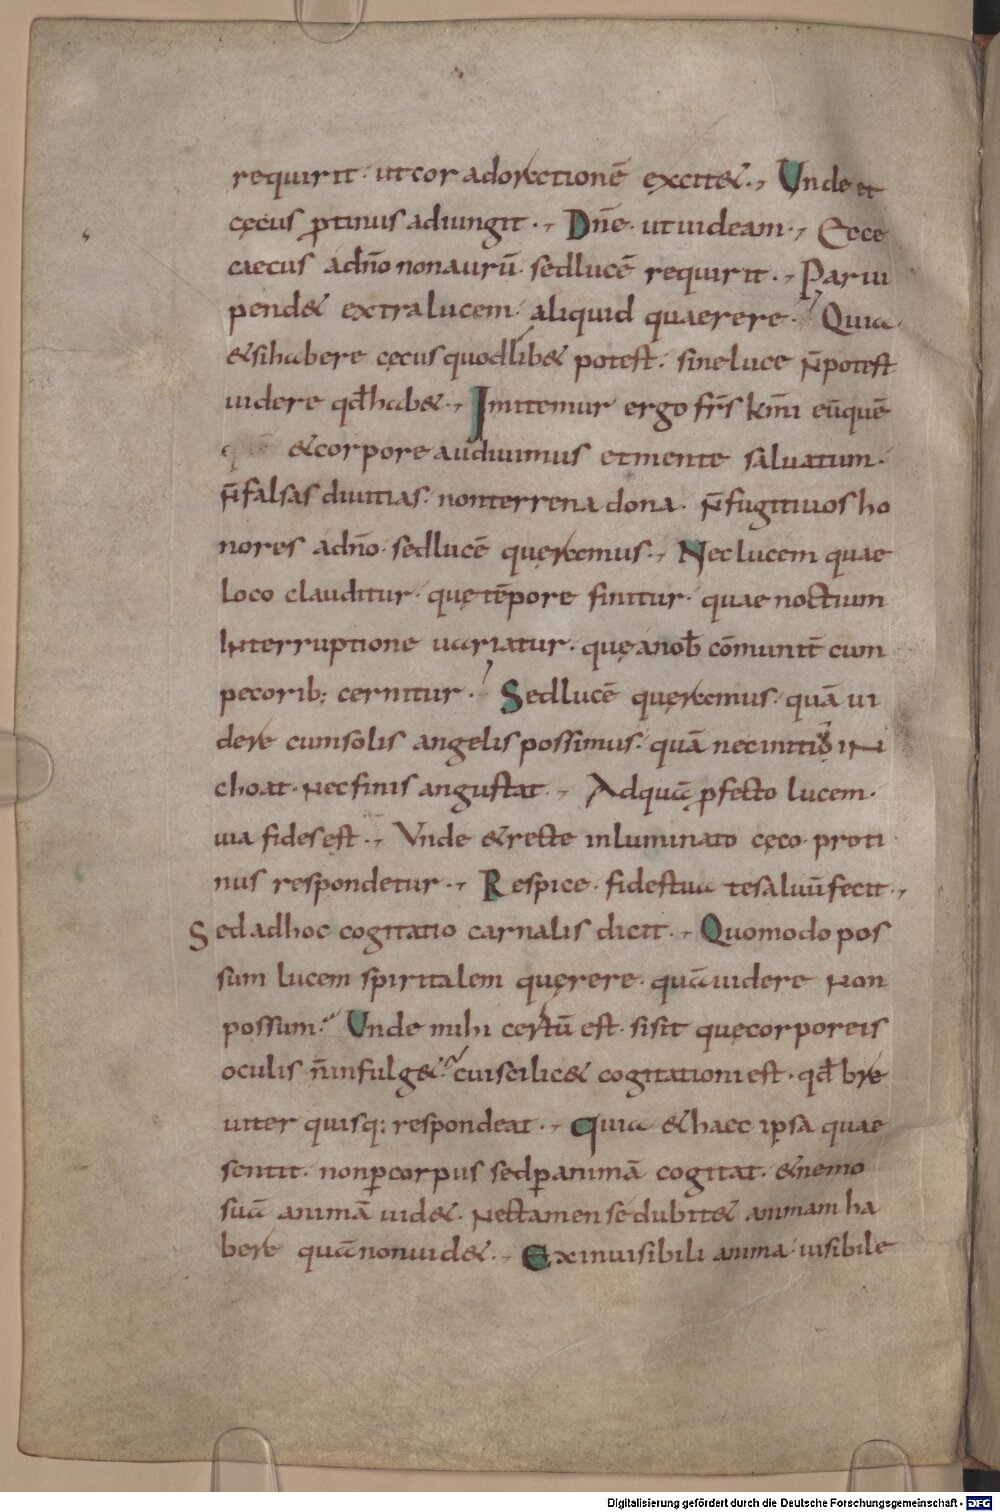 requirit · ut cor ad orationē excit& ., Unde et
cęcus ꝓtinus adiungit ., Dn̄e · ut uideam ., Ecce
caecus ad n̄o non aurū · sed lucē requirit ., Parui
pend& extra lucem · aliquid quaerere · Quia
& si habere cęcus quod lib& potest · sine luce n̄ potest
uidere qđ hab& ., Imitemur ergo fr̄s km̄i eūquē
& corpore audiuimus et mente saluatum ·
n̄ falsas diuitias · non terrena dona · n̄ fugitiuos ho
nores ad n̄o · sed lucē queramus ., Nec lucem quae
loco clauditur · quę tēpore finitur · quae noctium
interruptione uariatur · quę a nob̄ cōmunit̄ cum
pecorib; cernitur · Sed lucē queramus · quā ui
dere cum solis angelis possimus · quā nec initiū in
choat · nec finis angustat ., Ad quā ꝓfecto lucem ·
uia fides est ., Unde & recte inluminato cęco · proti
nus respondetur ., Respice · fides tua te saluū fecit .,
Sed ad hoc cogitatio carnalis dicit ., Quomodo pos
sum lucem spiritalem quęrere · quā uidere non
possum · Unde mihi certū est · si sit quę corporeis
oculis n̄ infulg& · cui scilic& cogitationi est · qđ bre
uiter quisq; respondeat ., Quia & haec ipsa quae
sentit · non ꝑ corpus sed ꝑ animā cogitat · & nemo
suā animā uid& · nec tamen se dubit& animam ha
bere quā non uid& ., Ex inuisibili anima · uisibile
Digitalisierung gefördert durch die Deutsche Forschungsgemeinschaft - DFG